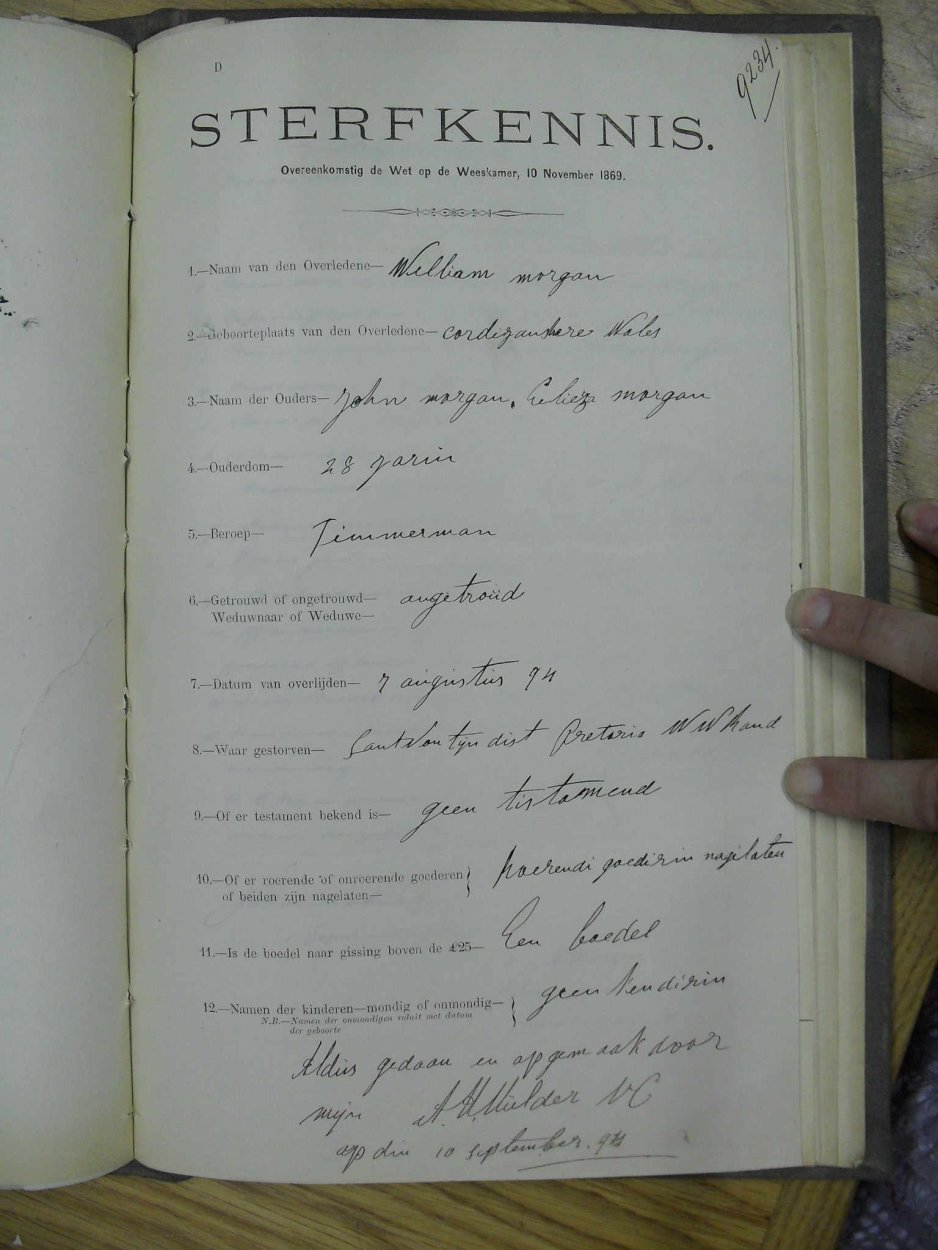 D
9234.
STERFKENNIS.
Overeenkomstig de Wet op de Weeskamer, 10 November 1869.
1.—Naam van den Overledene— William morgan
2.—Geboorteplaats van den Overledene— cordiganshere Wales
3.—Naam der Ouders— John morgan, Elieza morgan
4.—Ouderdom— 28 jarin
5.—Beroep— Timmerman
6.—Getrouwd of ongetrouwd— ongetroud
Weduwnaar of Weduwe—
7.—Datum van overlijden— 7 augustus 94
8.—Waar gestorven— dist Pretoria WW Rand
9.—Of er testament bekend is— geen tistamend
10.—Of er roerende of onroerende goederen} Roerendi goedirin nagilaten
of beiden zijn nagelaten—
11.—Is de boedel naar gissing boven de £25— Een boedel
12.—Namen der kinderen—mondig of onmondig—} geen kendirin
N.B.—Namen der onmondigen voluit met datum
der geboorte
Aldus gedaan en opgemaak door
mijn A.H. Mulder VC
op din 10 september 94